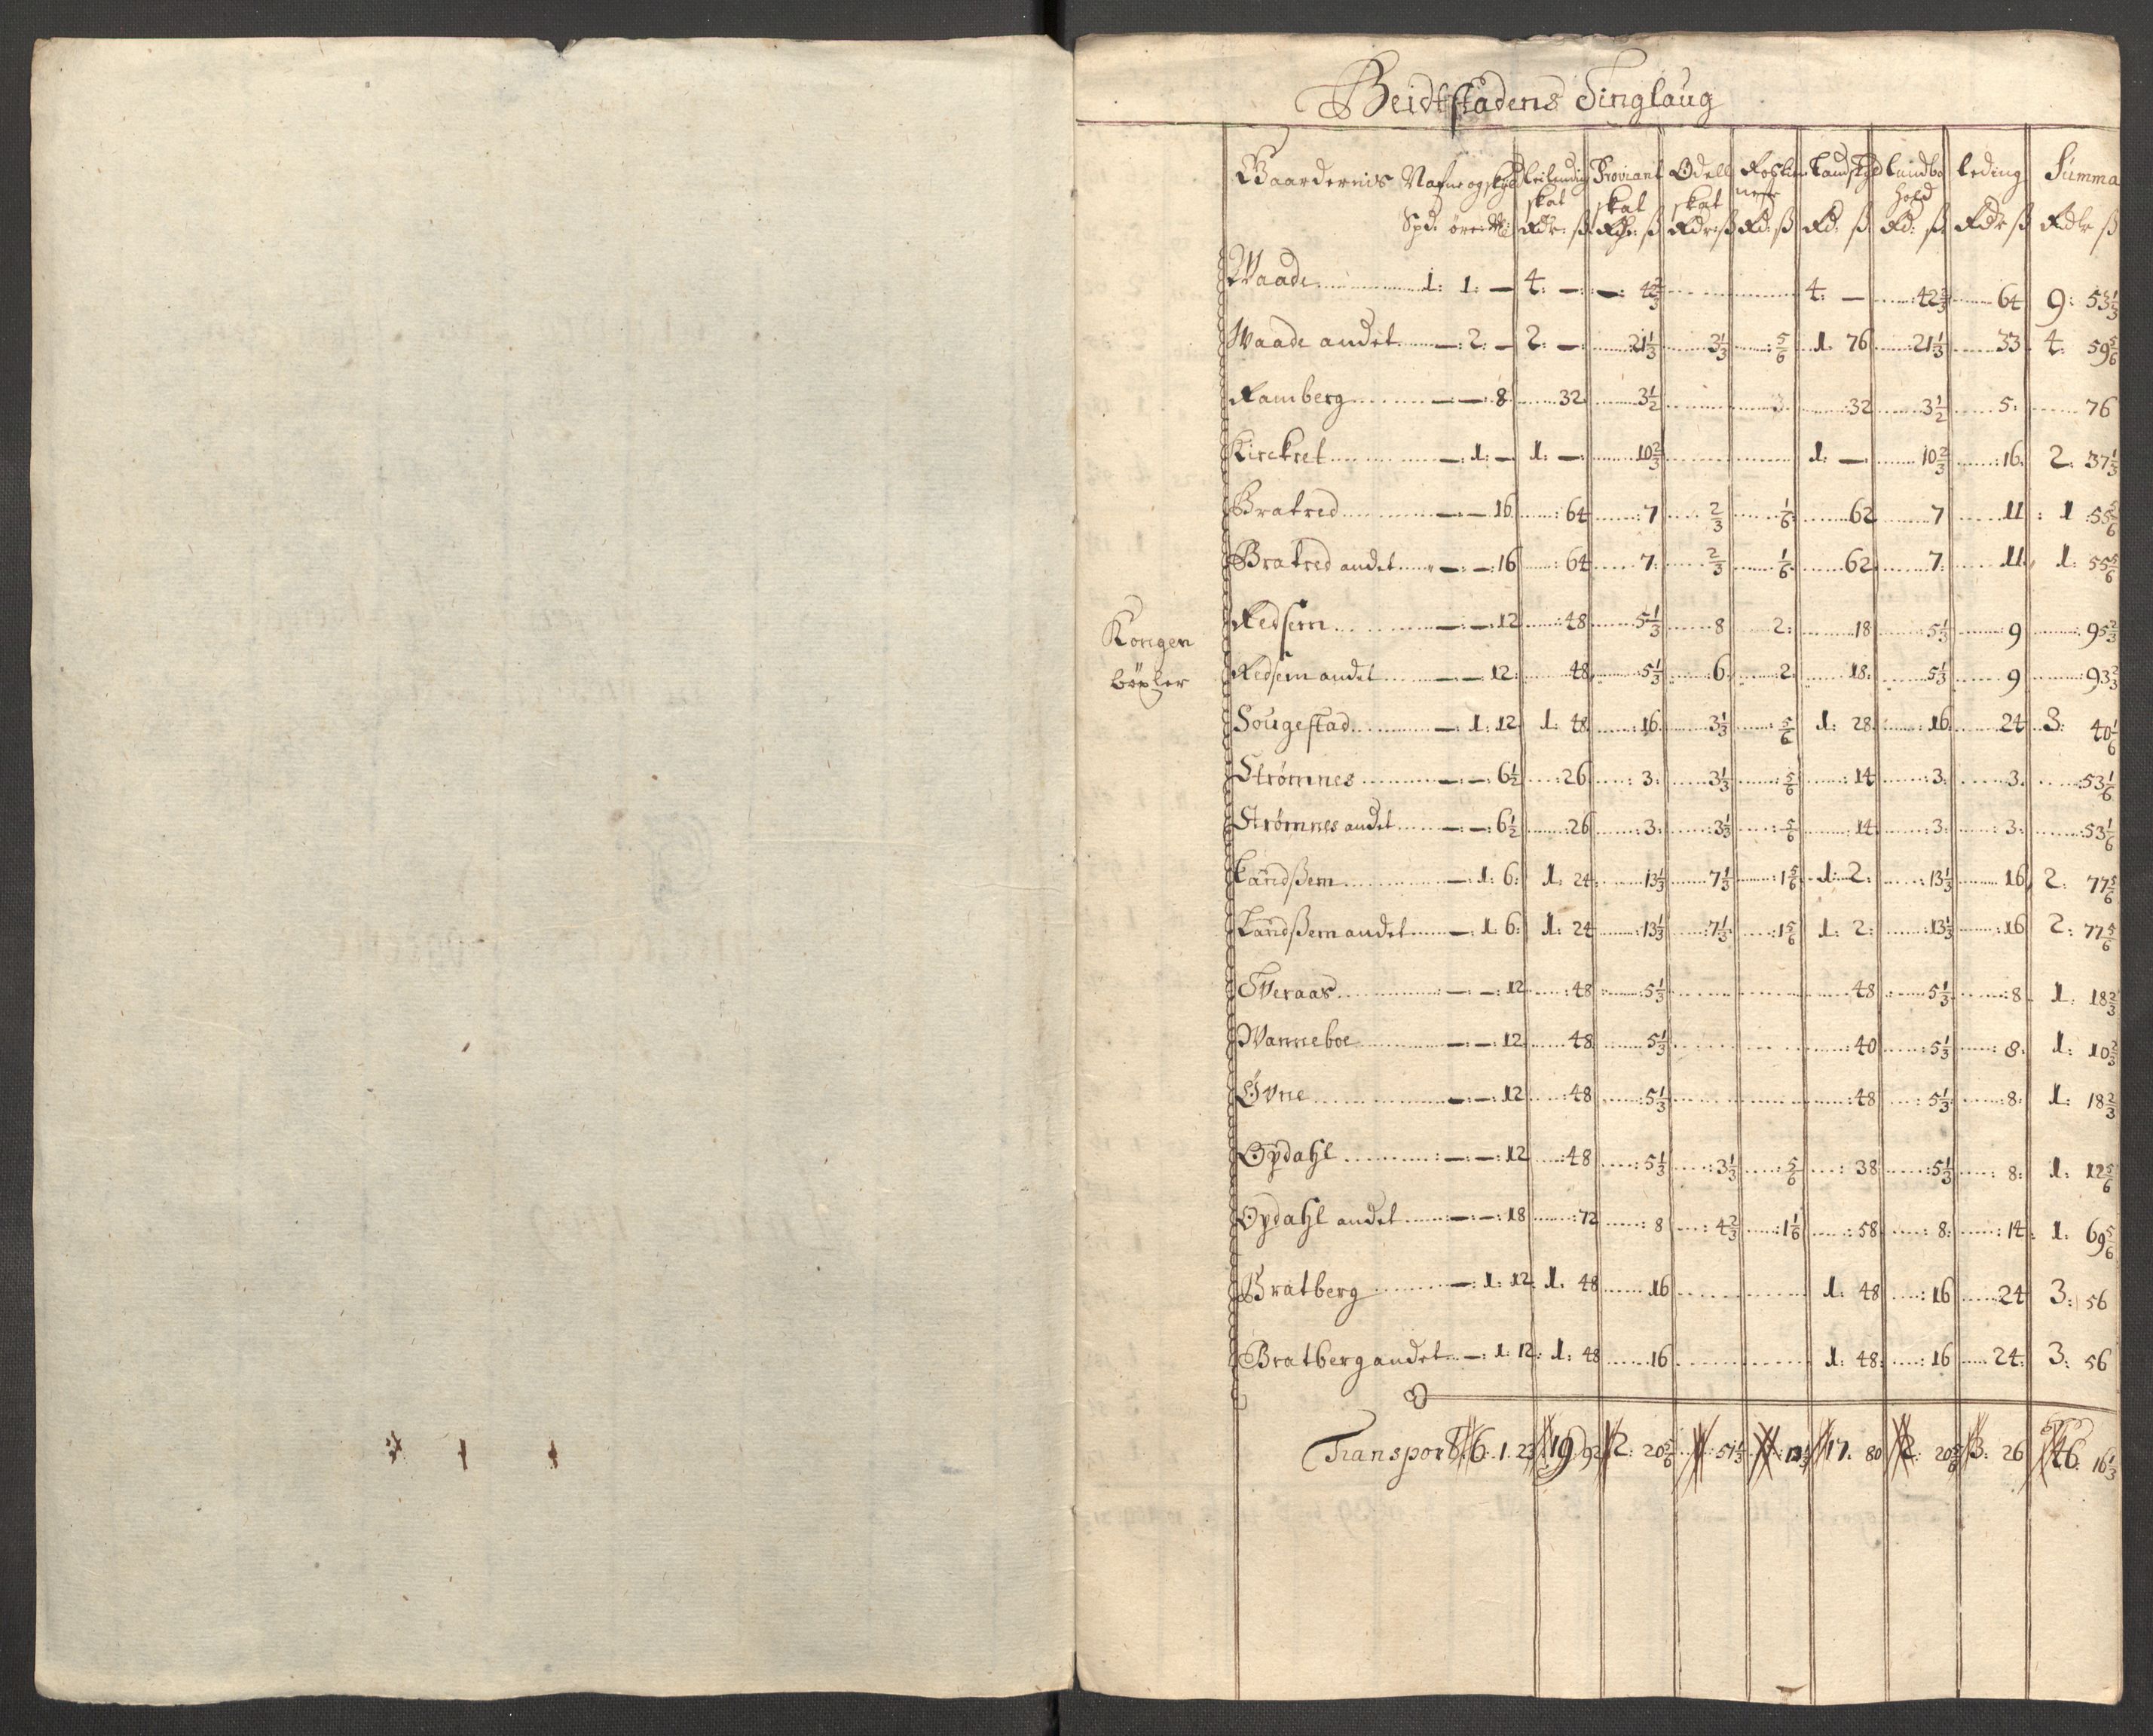 Beidtstadens Tinglaug
Gaardernis Nafne og skyld Leilending skat Proviant skat Odell skat Rostie neste Landskyld Landbo hold Leding Summa
Spd: ører Ml: Rdr: ß Rdr: ß Rdr: ß Rd: ß Rd: ß Rd: ß Rdr ß Rdlr ß
Waade 1: 1: — 4: — — 42 2/3 4: — 42 2/3 64 9: 53 1/3
Waade andet — 2: — 2: — 21 1/3 3 1/3 5/6 1. 76 21 1/3 33 4: 59 5/6
Ramberg — — 8 32 3 1/2 32 3 1/2 5: 76
Kirckret — 1: — 1: — 10 2/3 1: — 10 2/3 16: 2: 37 1/3
Bratred — — 16 64 7 2/3 1/6 62 7 11: 1 55 5/6
Bratred andet — — 16 64 7: 2/3 1/6 62 7: 11: 1: 55 5/6
Kongen bøxler
Redsem — — 12 48 5 1/3 8 2: 18 5 1/3 9 95 2/3
Redsem andet — — 12: 48 5 1/3 6 2: 18: 5 1/3 9 93 2/3
Sougestad — 1: 12 1: 48 16 3 1/3 5/6 1: 28 16 24 3: 40 1/6
Strømnes — — 6 1/2 26 3: 3 1/3 5/6 14 3: 3: 53 1/6
Strømnes andet — — 6 1/2 26 3: 3 1/3 5/6 14 3: 3: 53 1/6
Landßem — 1: 6: 1: 24 13 1/3 7 1/3 1 5/6 1: 2: 13 1/3 16 2: 77 5/6
Landßem andet — 1: 6: 1: 24 13 1/3 7 1/3 1 5/6 1: 2: 13 1/3 16 2: 77 5/6
Sveraas — — 12 48 5 1/3 48 5 1/3 8 1: 18 2/3
Wanneboe — — 12 48 5 1/3 40 5 1/3 8: 1: 10 2/3
Øvne — — 12 48 5 1/3 48 5 1/3 8: 1: 18 2/3
Opdahl — — 12 48 5 1/3 3 1/3 5/6 38 5 1/3 8: 1: 12 5/6
Opdahl andet — — 18 72 8 4 2/3 1 1/6 58 8: 14: 1: 69 5/6
Bratberg — 1: 12 1: 48 16 1: 48 16 24 3: 56
Bratberg andet — 1: 12: 1: 48 16 1: 48: 16 24: 3: 56
Transport 6: 1: 23 19 92 2: 20 5/6 51 1/3 17: 80 2: 20 5/6 3: 26 46: 16 1/3